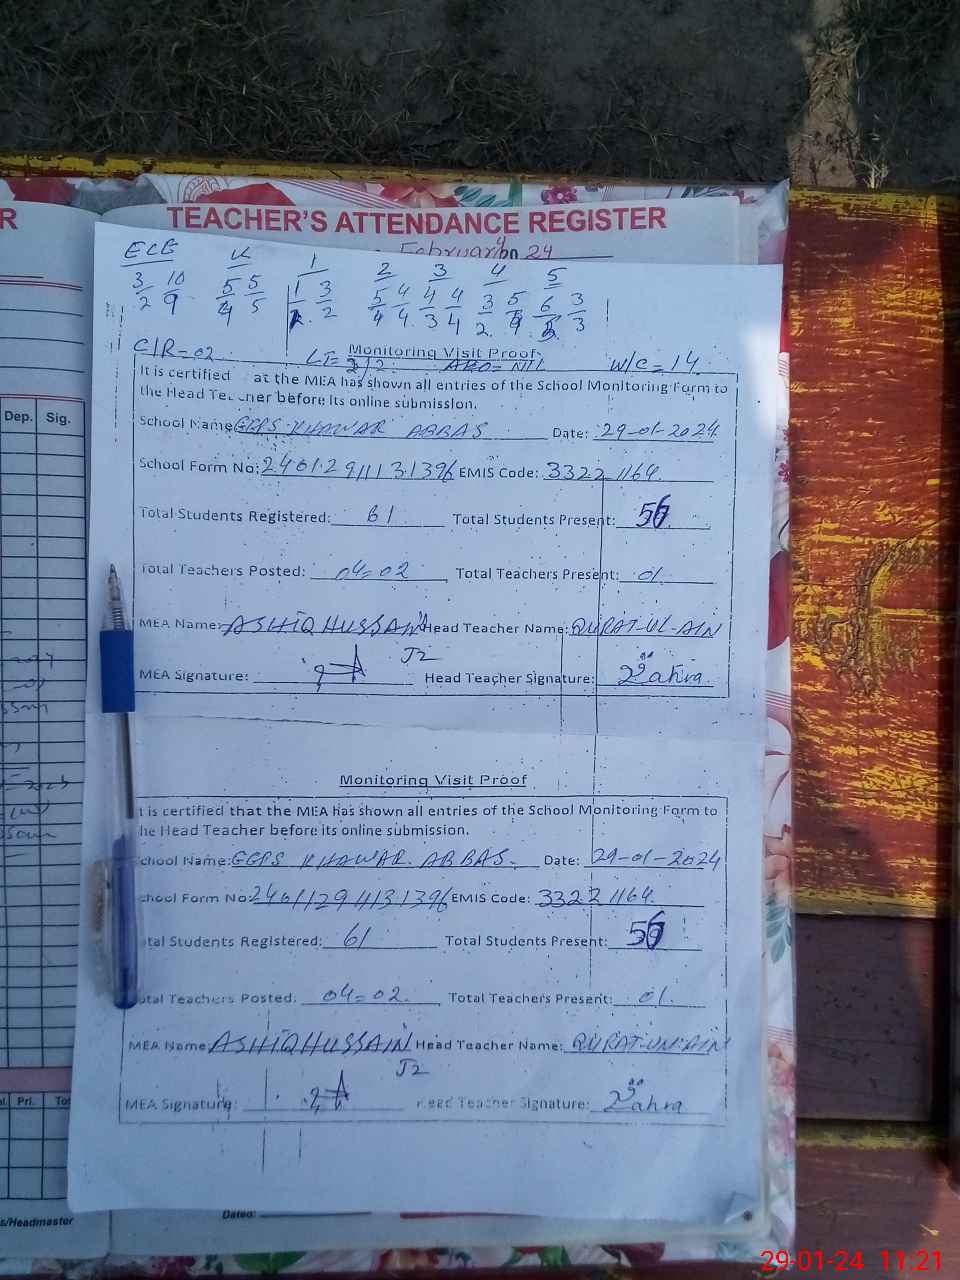 R
TEACHER'S ATTENDANCE REGISTER
February 24
ECE K 1 2 3 4 5
3/2 10/9 5/4 5/5 1/1 3/2 5/4 4/4 4/3 4/4 3/2 5/4 6/5 3/3
C/R=02 LT= W/C=14
Monitoring Visit Proof
It is certified at the MEA has shown all entries of the School Monitoring Form to
the Head Te cher before its online submission.
School Name GGPS KHAWAR ABBAS Date: 29-01-2024
School Form No: EMIS Code: 33221164
Total Students Registered: 61 Total Students Present: 56
Total Teachers Posted: 04=02 Total Teachers Present: 01
MEA Name: ASHIQ HUSSAIN Head Teacher Name: QURAT-UL-AIN
MEA Signature: Head Teacher Signature: Zahra
Monitoring Visit Proof
t is certified that the MEA has shown all entries of the School Monitoring Form to
he Head Teacher before its online submission.
chool Name: GGPS KHAWAR ABBAS. Date: 29-01-2024
chool Form No: EMIS Code: 33221164.
tal Students Registered: 61 Total Students Present: 56
otal Teachers Posted: 04=02. Total Teachers Present: 01.
MEA Name: ASHIQ HUSSAIN Head Teacher Name: QURAT-UL-AIN
MEA Signature: Head Teacher Signature: Zahra
Dep. Sig.
Pri. Tot
s/Headmaster
Dated:
29-01-24 11:21